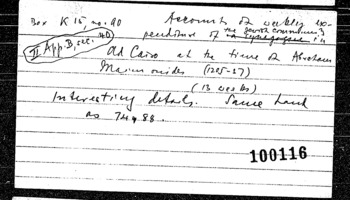 Box K 15, no. 90 Accounts of weekly ex-
penditure of the Jewish community in
II App. B, sec. 40
Old Cairo at the time of Abraham
Maimonides (1205-37)
(13 weeks)
Interesting details. Same hand
as 7448.
100116